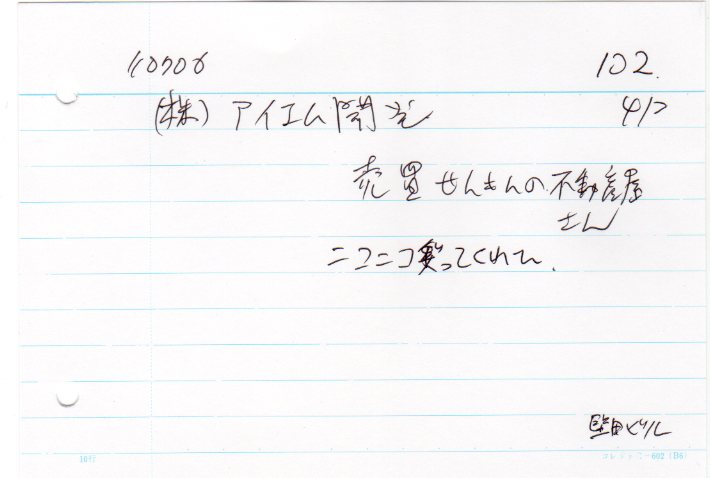 110706 102.
(株)アイエム開発 417
売買せんもんの不動産屋
さん
ニコニコ笑ってくれて、
堅田ビル
16行 コレクト C-602 (B6)